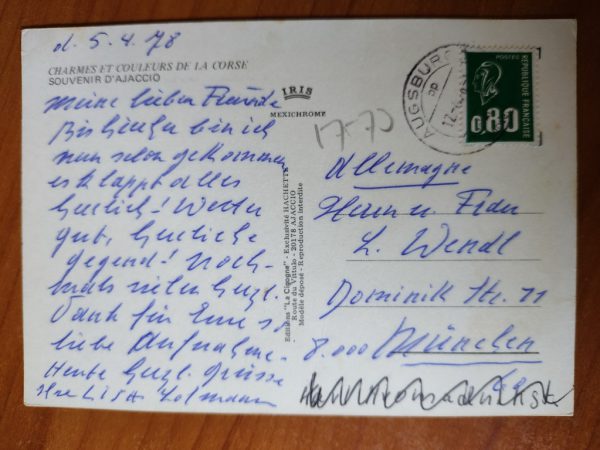 d. 5.4.78
CHARMES ET COULEURS DE LA CORSE
SOUVENIR D'AJACCIO
IRIS
MEXICHROME
17-70
AUGSBURG
POSTES
REPUBLIQUE FRANÇAISE
0,80
Meine lieben Freunde
Bis hierher bin ich
nun schon gekommen
es klappt alles
herrlich! Wetter
gut, herrliche
Gegend! Noch-
mals vielen herzl.
Dank für Eure so
liebe Aufnahme.
Heute herzl. Grüsse
Editions "La Cigogne" - Exclusivité HACHETTE
Route du Vittulo - 20178 AJACCIO
Modèle déposé - Reproduction interdite
Allemagne
Herrn u. Frau
L. Wendl
Dominik Str. 11
8.000 München